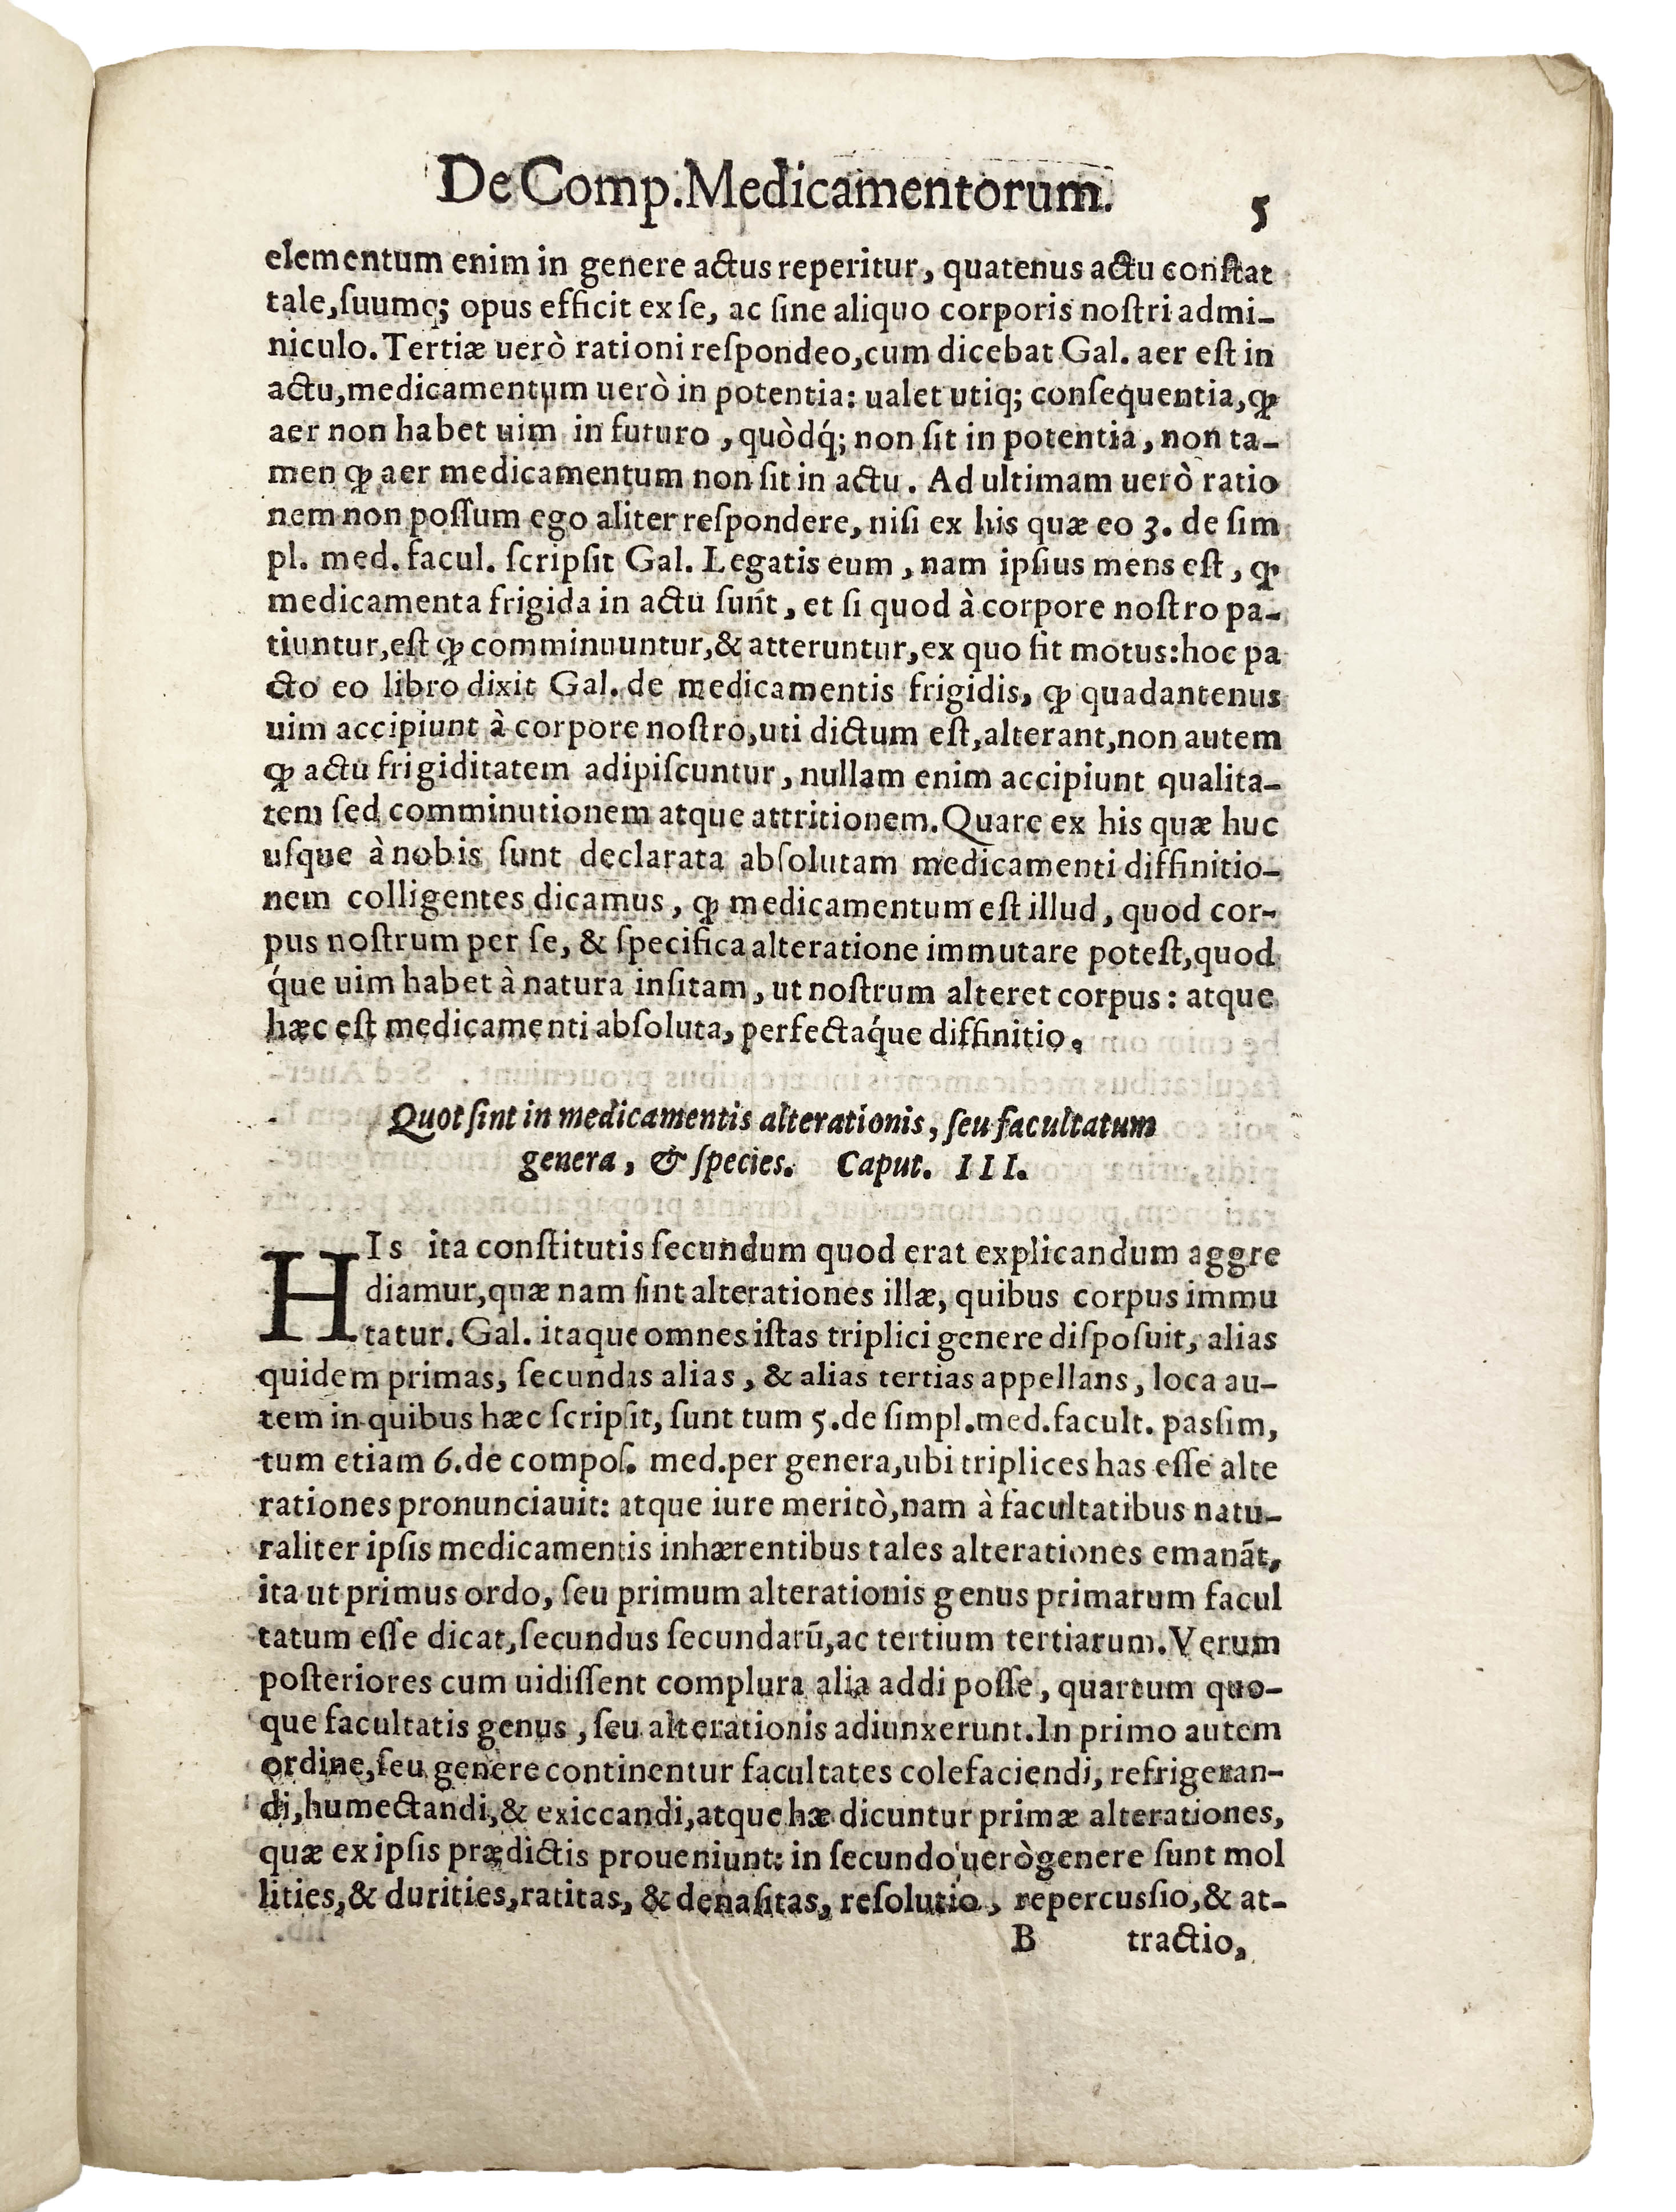 De Comp. Medicamentorum. 5
elementum enim in genere actus reperitur, quatenus actu conſtat
tale, ſuumq; opus efficit ex ſe, ac ſine aliquo corporis noſtri admi-
niculo. Tertiæ uerò rationi reſpondeo, cum dicebat Gal. aer eſt in
actu, medicamentum uerò in potentia: ualet utiq; conſequentia, ꝙ
aer non habet uim in futuro, quòdq́; non ſit in potentia, non ta-
men ꝙ aer medicamentum non ſit in actu. Ad ultimam uerò ratio
nem non poſſum ego aliter reſpondere, niſi ex his quæ eo 3. de ſim
pl. med. facul. ſcripſit Gal. Legatis eum, nam ipſius mens eſt, ꝙ
medicamenta frigida in actu ſunt, et ſi quod à corpore noſtro pa-
tiuntur, eſt ꝙ comminuuntur, & atteruntur, ex quo fit motus: hoc pa
cto eo libro dixit Gal. de medicamentis frigidis, ꝙ quadantenus
uim accipiunt à corpore noſtro, uti dictum eſt, alterant, non autem
ꝙ actu frigiditatem adipiſcuntur, nullam enim accipiunt qualita-
tem ſed comminutionem atque attritionem. Quare ex his quæ huc
uſque à nobis ſunt declarata abſolutam medicamenti diffinitio-
nem colligentes dicamus, ꝙ medicamentum eſt illud, quod cor-
pus noſtrum per ſe, & ſpecifica alteratione immutare poteſt, quod
q́ue uim habet à natura inſitam, ut noſtrum alteret corpus: atque
hæc eſt medicamenti abſoluta, perfectaq́ue diffinitio.
Quot ſint in medicamentis alterationis, ſeu facultatum
genera, & ſpecies. Caput. III.
HIs ita conſtitutis ſecundum quod erat explicandum aggre
diamur, quæ nam ſint alterationes illæ, quibus corpus immu
tatur. Gal. itaque omnes iſtas triplici genere diſpoſuit, alias
quidem primas, ſecundas alias, & alias tertias appellans, loca au-
tem in quibus hæc ſcripſit, ſunt tum 5. de ſimpl. med. facult. paſsim,
tum etiam 6. de compoſ. med. per genera, ubi triplices has eſſe alte
rationes pronunciauit: atque iure meritò, nam à facultatibus natu-
raliter ipſis medicamentis inhærentibus tales alterationes emanãt,
ita ut primus ordo, ſeu primum alterationis genus primarum facul
tatum eſſe dicat, ſecundus ſecundarũ, ac tertium tertiarum. Verum
poſteriores cum uidiſſent complura alia addi poſſe, quartum quo-
que facultatis genus, ſeu alterationis adiunxerunt. In primo autem
ordine, ſeu genere continentur facultates colefaciendi, refrigeran-
di, humectandi, & exiccandi, atque hæ dicuntur primæ alterationes,
quæ ex ipſis prædictis proueniunt: in ſecundo uerò genere ſunt mol
lities, & durities, ratitas, & denaſitas, reſolutio, repercuſsio, & at-
B tractio,